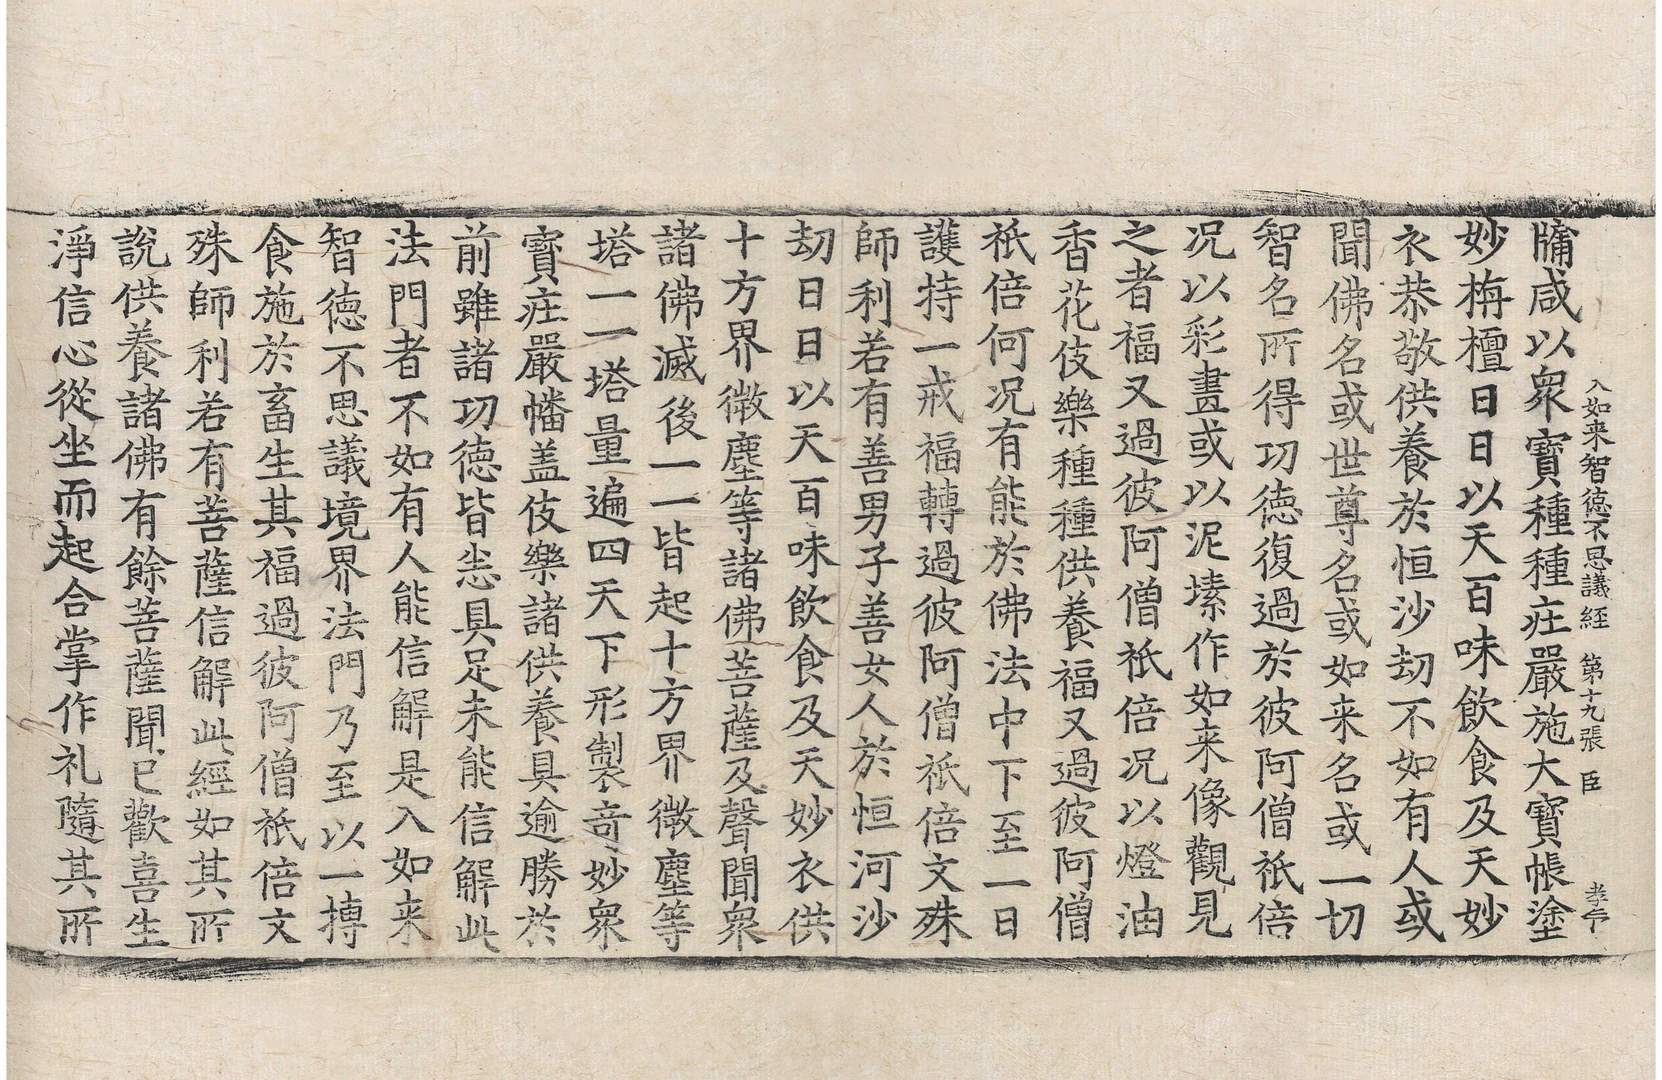 入如来智德不思議經 第十九張 臣
牖咸以衆寶種種庄嚴施大寶帳塗
妙栴檀日日以天百味飲食及天妙
衣恭敬供養於恒沙劫不如有人或
聞佛名或世尊名或如来名或一切
智名所得功德復過於彼阿僧祇倍
况以彩畫或以泥塐作如来像觀見
之者福又過彼阿僧祇倍况以燈油
香花伎樂種種供養福又過彼阿僧
祇倍何况有能於佛法中下至一日
護持一戒福轉過彼阿僧祇倍文殊
師利若有善男子善女人於恒河沙
劫日日以天百味飲食及天妙衣供
十方界微塵等諸佛菩薩及聲聞衆
諸佛滅後一一皆起十方界微塵等
塔一一塔量遍四天下形製竒妙衆
寶庄嚴幡盖伎樂諸供養具逾勝於
前雖諸功德皆悉具足未能信解此
法門者不如有人能信解是入如来
智德不思議境界法門乃至以一摶
食施於畜生其福過彼阿僧祇倍文
殊師利若有菩薩信解此經如其所
說供養諸佛有餘菩薩聞已歡喜生
淨信心從坐而起合掌作礼隨其所